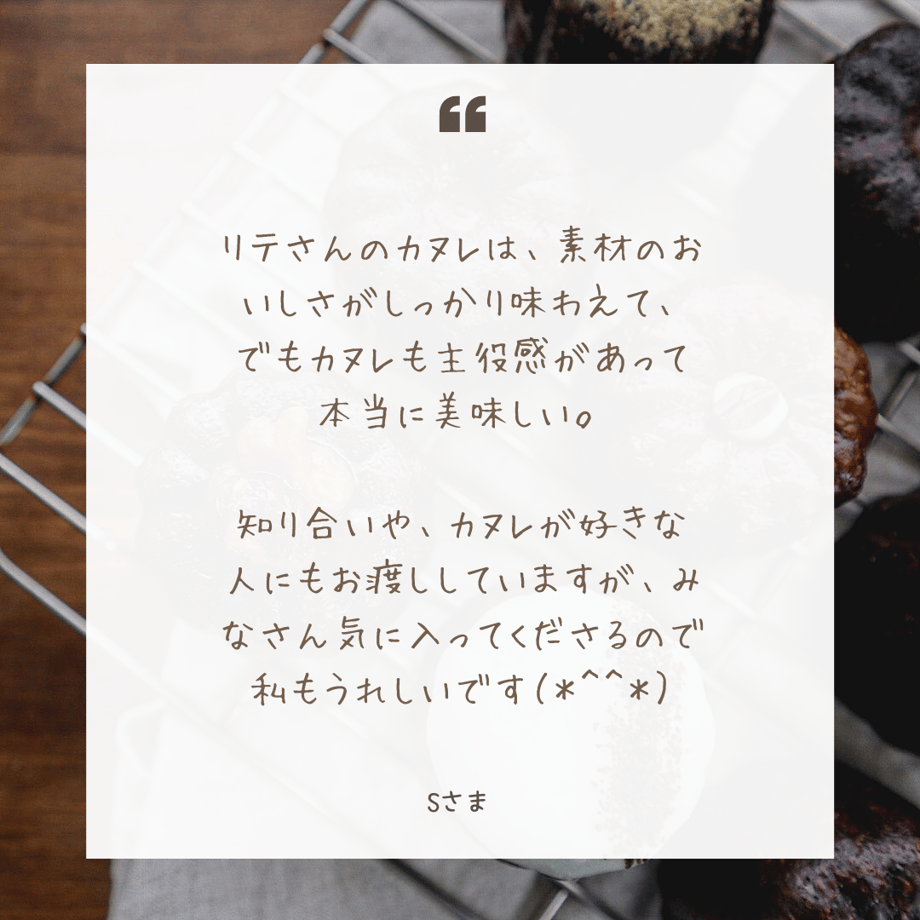 “
リテさんのカヌレは、素材のお
いしさがしっかり味わえて、
でもカヌレも主役感があって
本当に美味しい。
知り合いや、カヌレが好きな
人にもお渡ししていますが、み
なさん気に入ってくださるので
私もうれしいです(*^^*)
Sさま